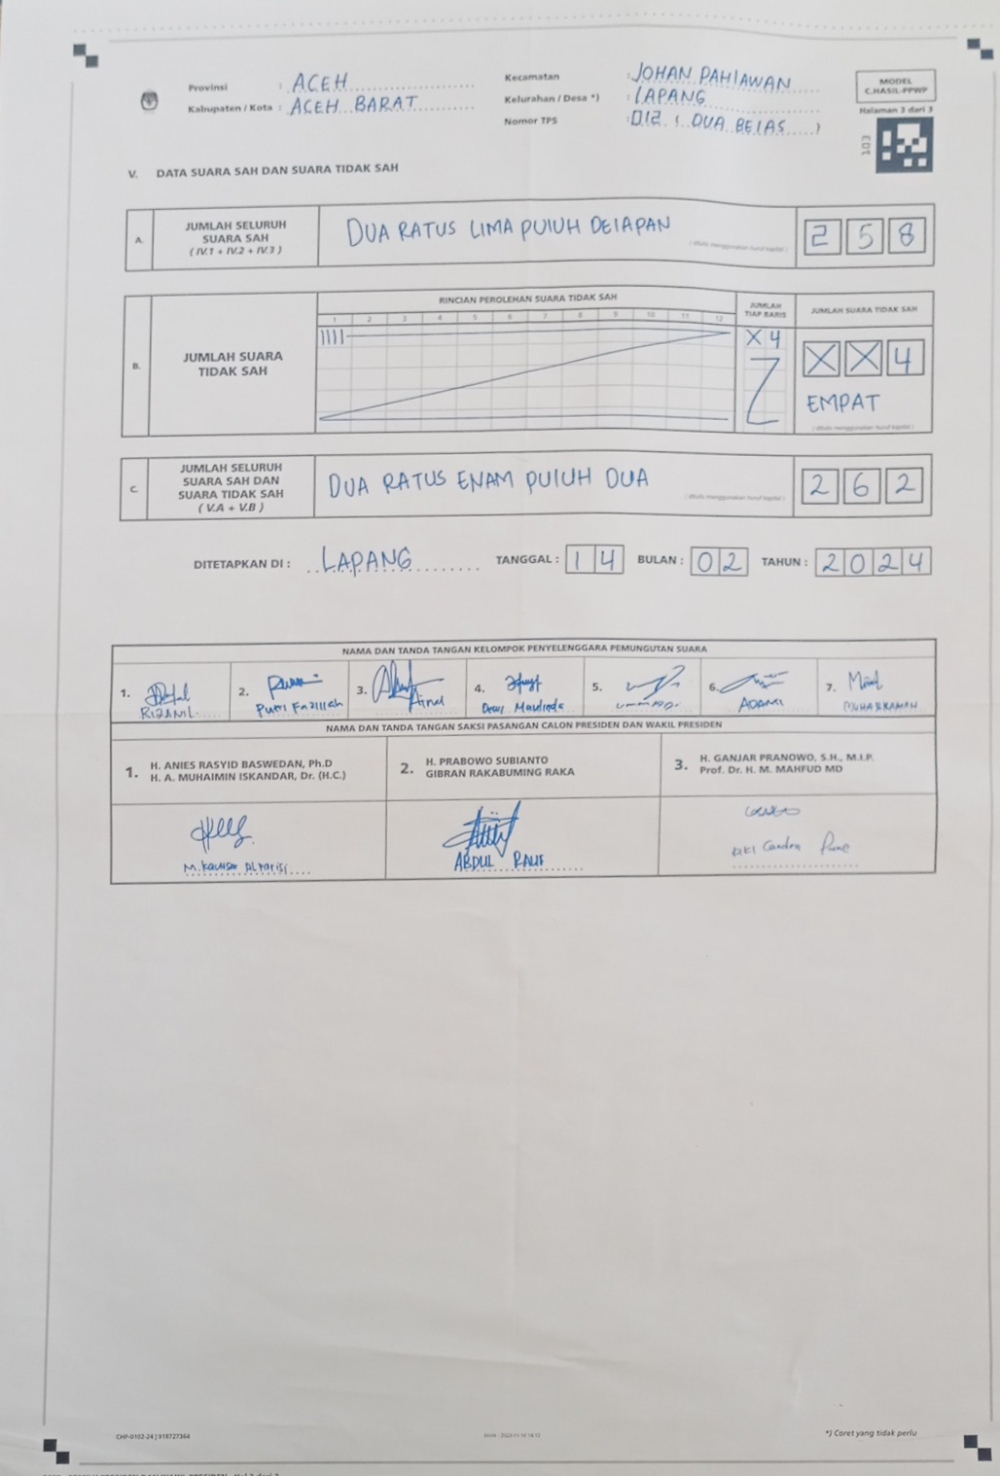 Provinsi : ACEH
Kabupaten / Kota : ACEH BARAT
Kecamatan : JOHAN PAHLAWAN
Kelurahan / Desa *) : LAPANG
Nomor TPS : 012 ( DUA BELAS )
MODEL
C.HASIL-PPWP
Halaman 3 dari 3
103
V. DATA SUARA SAH DAN SUARA TIDAK SAH
A. JUMLAH SELURUH
SUARA SAH
( IV.1 + IV.2 + IV.3 )
DUA RATUS LIMA PULUH DELAPAN
( ditulis menggunakan huruf kapital )
2 5 8
B. JUMLAH SUARA
TIDAK SAH
RINCIAN PEROLEHAN SUARA TIDAK SAH
1 2 3 4 5 6 7 8 9 10 11 12
JUMLAH
TIAP BARIS
X 4
JUMLAH SUARA TIDAK SAH
X X 4
EMPAT
( ditulis menggunakan huruf kapital )
C. JUMLAH SELURUH
SUARA SAH DAN
SUARA TIDAK SAH
( V.A + V.B )
DUA RATUS ENAM PULUH DUA
( ditulis menggunakan huruf kapital )
2 6 2
DITETAPKAN DI : LAPANG TANGGAL : 1 4 BULAN : 0 2 TAHUN : 2 0 2 4
NAMA DAN TANDA TANGAN KELOMPOK PENYELENGGARA PEMUNGUTAN SUARA
1. 2. 3. 4. 5. 6. 7.
NAMA DAN TANDA TANGAN SAKSI PASANGAN CALON PRESIDEN DAN WAKIL PRESIDEN
1. H. ANIES RASYID BASWEDAN, Ph.D
H. A. MUHAIMIN ISKANDAR, Dr. (H.C.)
2. H. PRABOWO SUBIANTO
GIBRAN RAKABUMING RAKA
3. H. GANJAR PRANOWO, S.H., M.I.P.
Prof. Dr. H. M. MAHFUD MD
ABDUL RAUF
CHP-0102-24 | 918727364
*) Coret yang tidak perlu